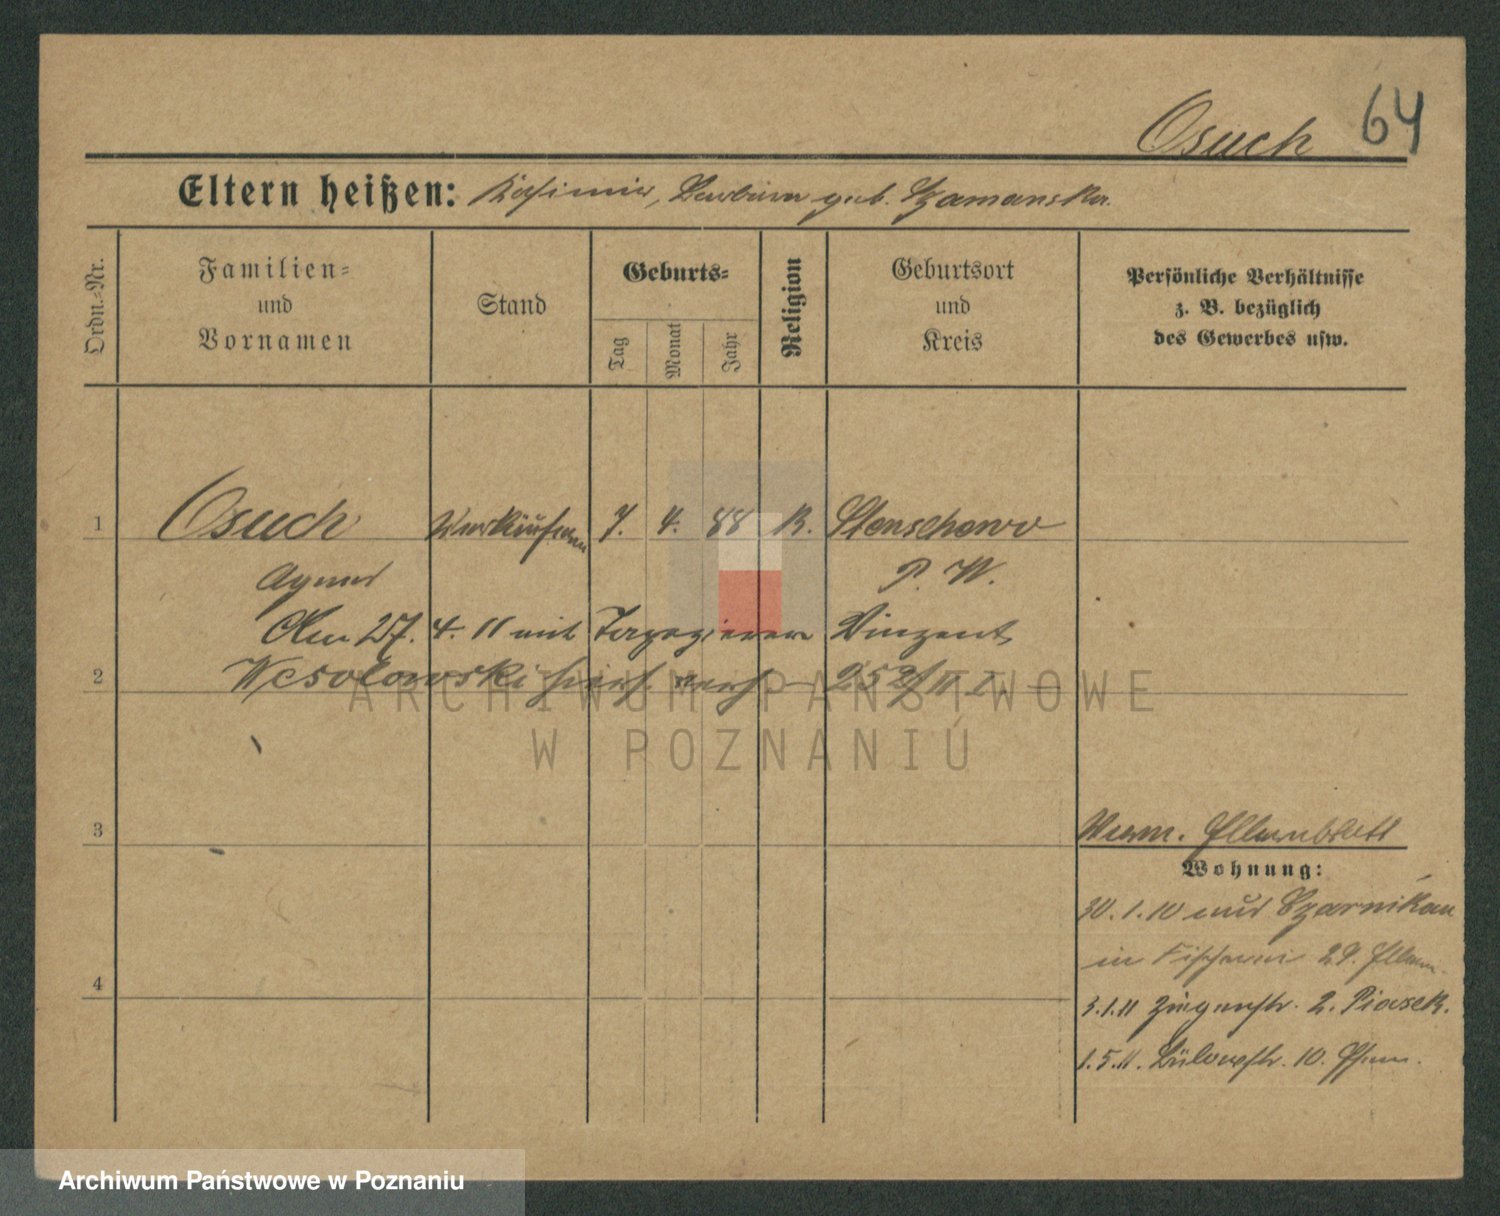 Osuch 64
Eltern heißen: Kasimir, Barbara geb. Szamanska.
Ordn.-Nr.
Familien-
und
Vornamen
Stand
Geburts-
Tag
Monat
Jahr
Religion
Geburtsort
und
Kreis
Persönliche Verhältnisse
z. B. bezüglich
des Gewerbes usw.
1 Osuch Verkäuferin 7. 4. 88 K. Stenschewo
Agnes P. W.
27. 4. 11 mit Tapezierer Vinzent
2 Wesolowski hier verh. 252/11 I
3
4
Verm. Elternblatt
Wohnung:
30.1.10 aus Czarnikau
in Fischerei 29. Eltern.
3.1.11 Ziegenstr. 2. Piasek.
1.5.11. Bülowstr. 10.
ARCHIWUM PAŃSTWOWE
W POZNANIU
Archiwum Państwowe w Poznaniu